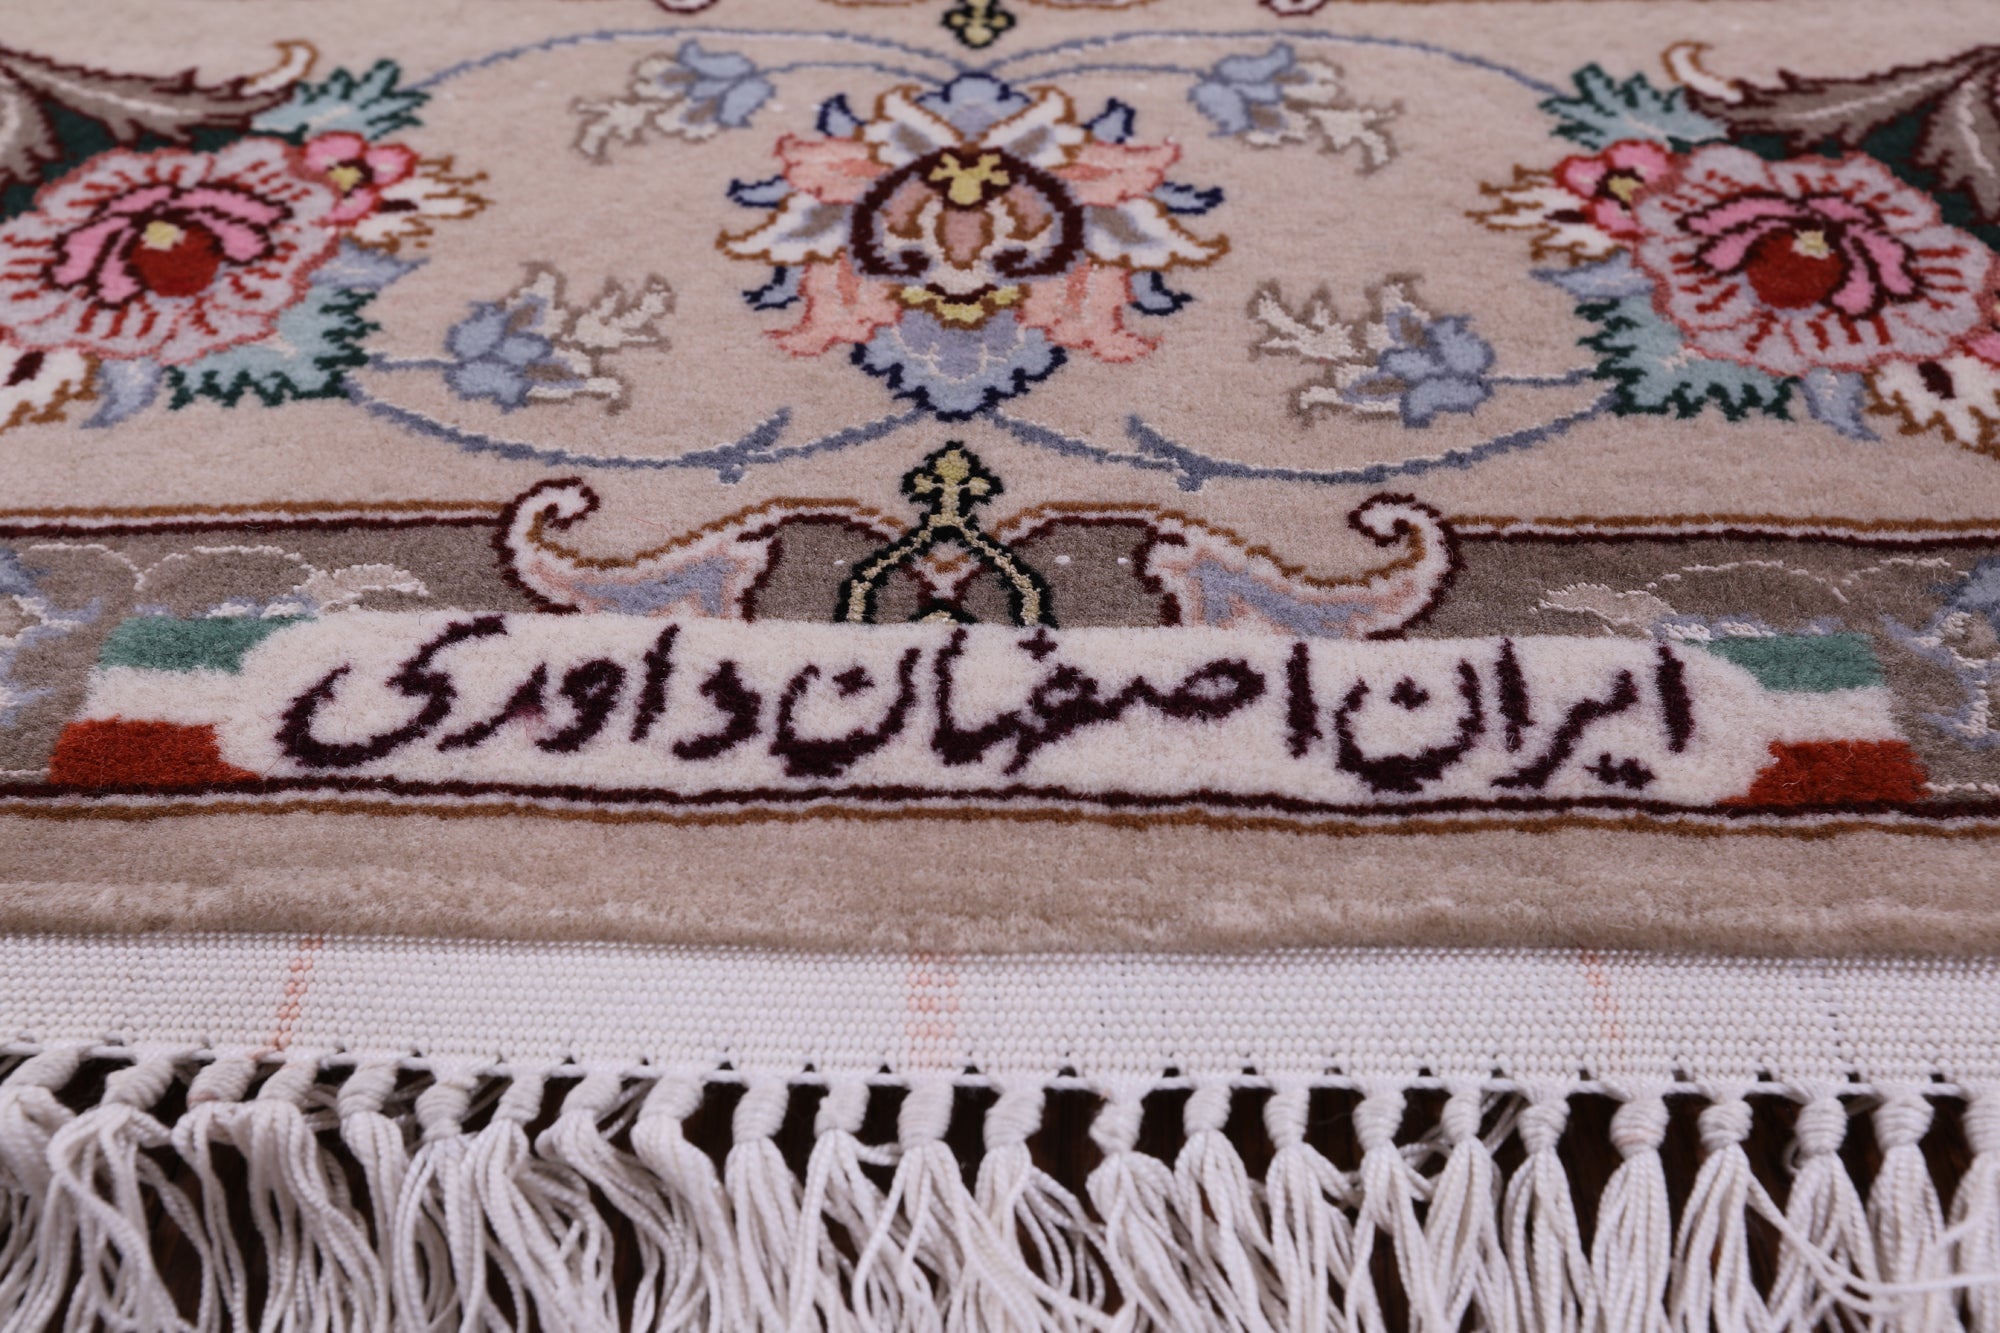 ایران اصفهان داوری